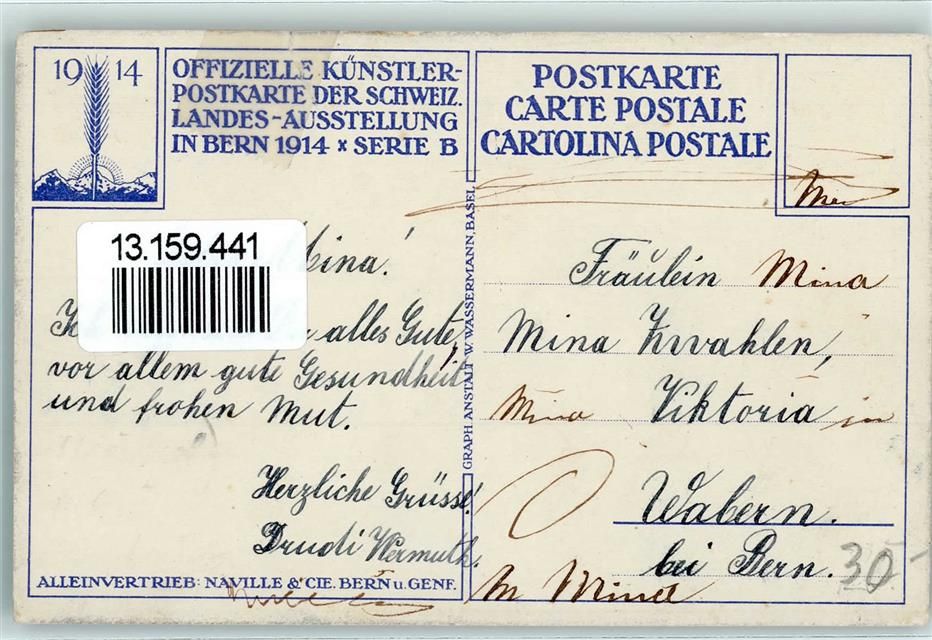 19 14
OFFIZIELLE KÜNSTLER-
POSTKARTE DER SCHWEIZ.
LANDES-AUSSTELLUNG
IN BERN 1914 × SERIE B
POSTKARTE
CARTE POSTALE
CARTOLINA POSTALE
13.159.441
Mina!
alles Gute,
vor allem gute Gesundheit
und frohen Mut.
Herzliche Grüsse!
Trudi Wermuth.
GRAPH. ANSTALT W. WASSERMANN, BASEL
Fräulein Mina
Mina Zwahlen,
Mina Viktoria in
Wabern.
bei Bern.
30-
Mina
ALLEINVERTRIEB: NAVILLE & CIE. BERN U. GENF.